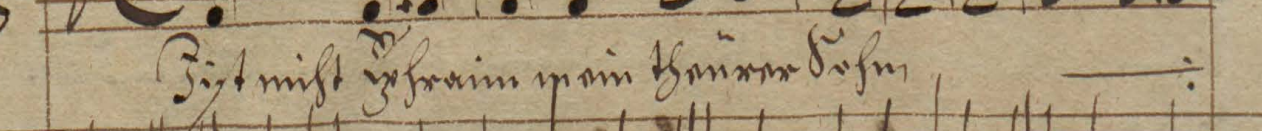 Ist nicht Ephraim mein theürer Sohn, —: